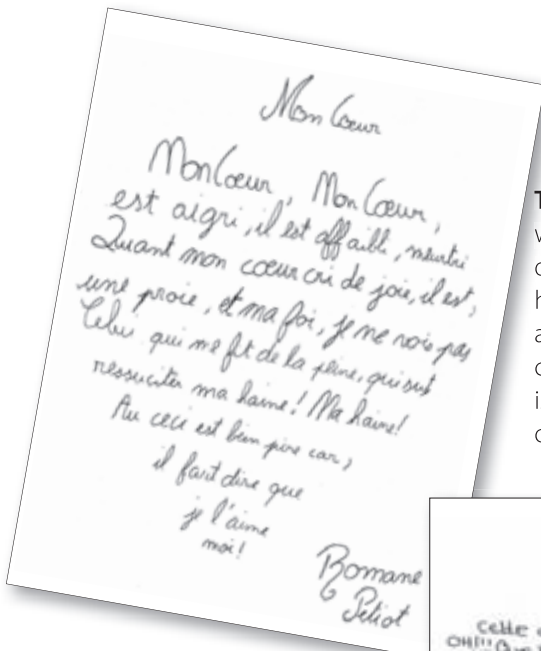 Mon Cœur
Mon Cœur, Mon Cœur,
est aigri, il est affaibli, meurtri
Quant mon cœur cri de joie, il est,
une proie, et ma foi, je ne vois pas
Celui qui me fit de la peine, qui sut
ressuciter ma haine! Ma haine!
Au ceci est bien pire car,
il faut dire que
je l'aime
moi!
Romane
Petiot
cette
OH!!!